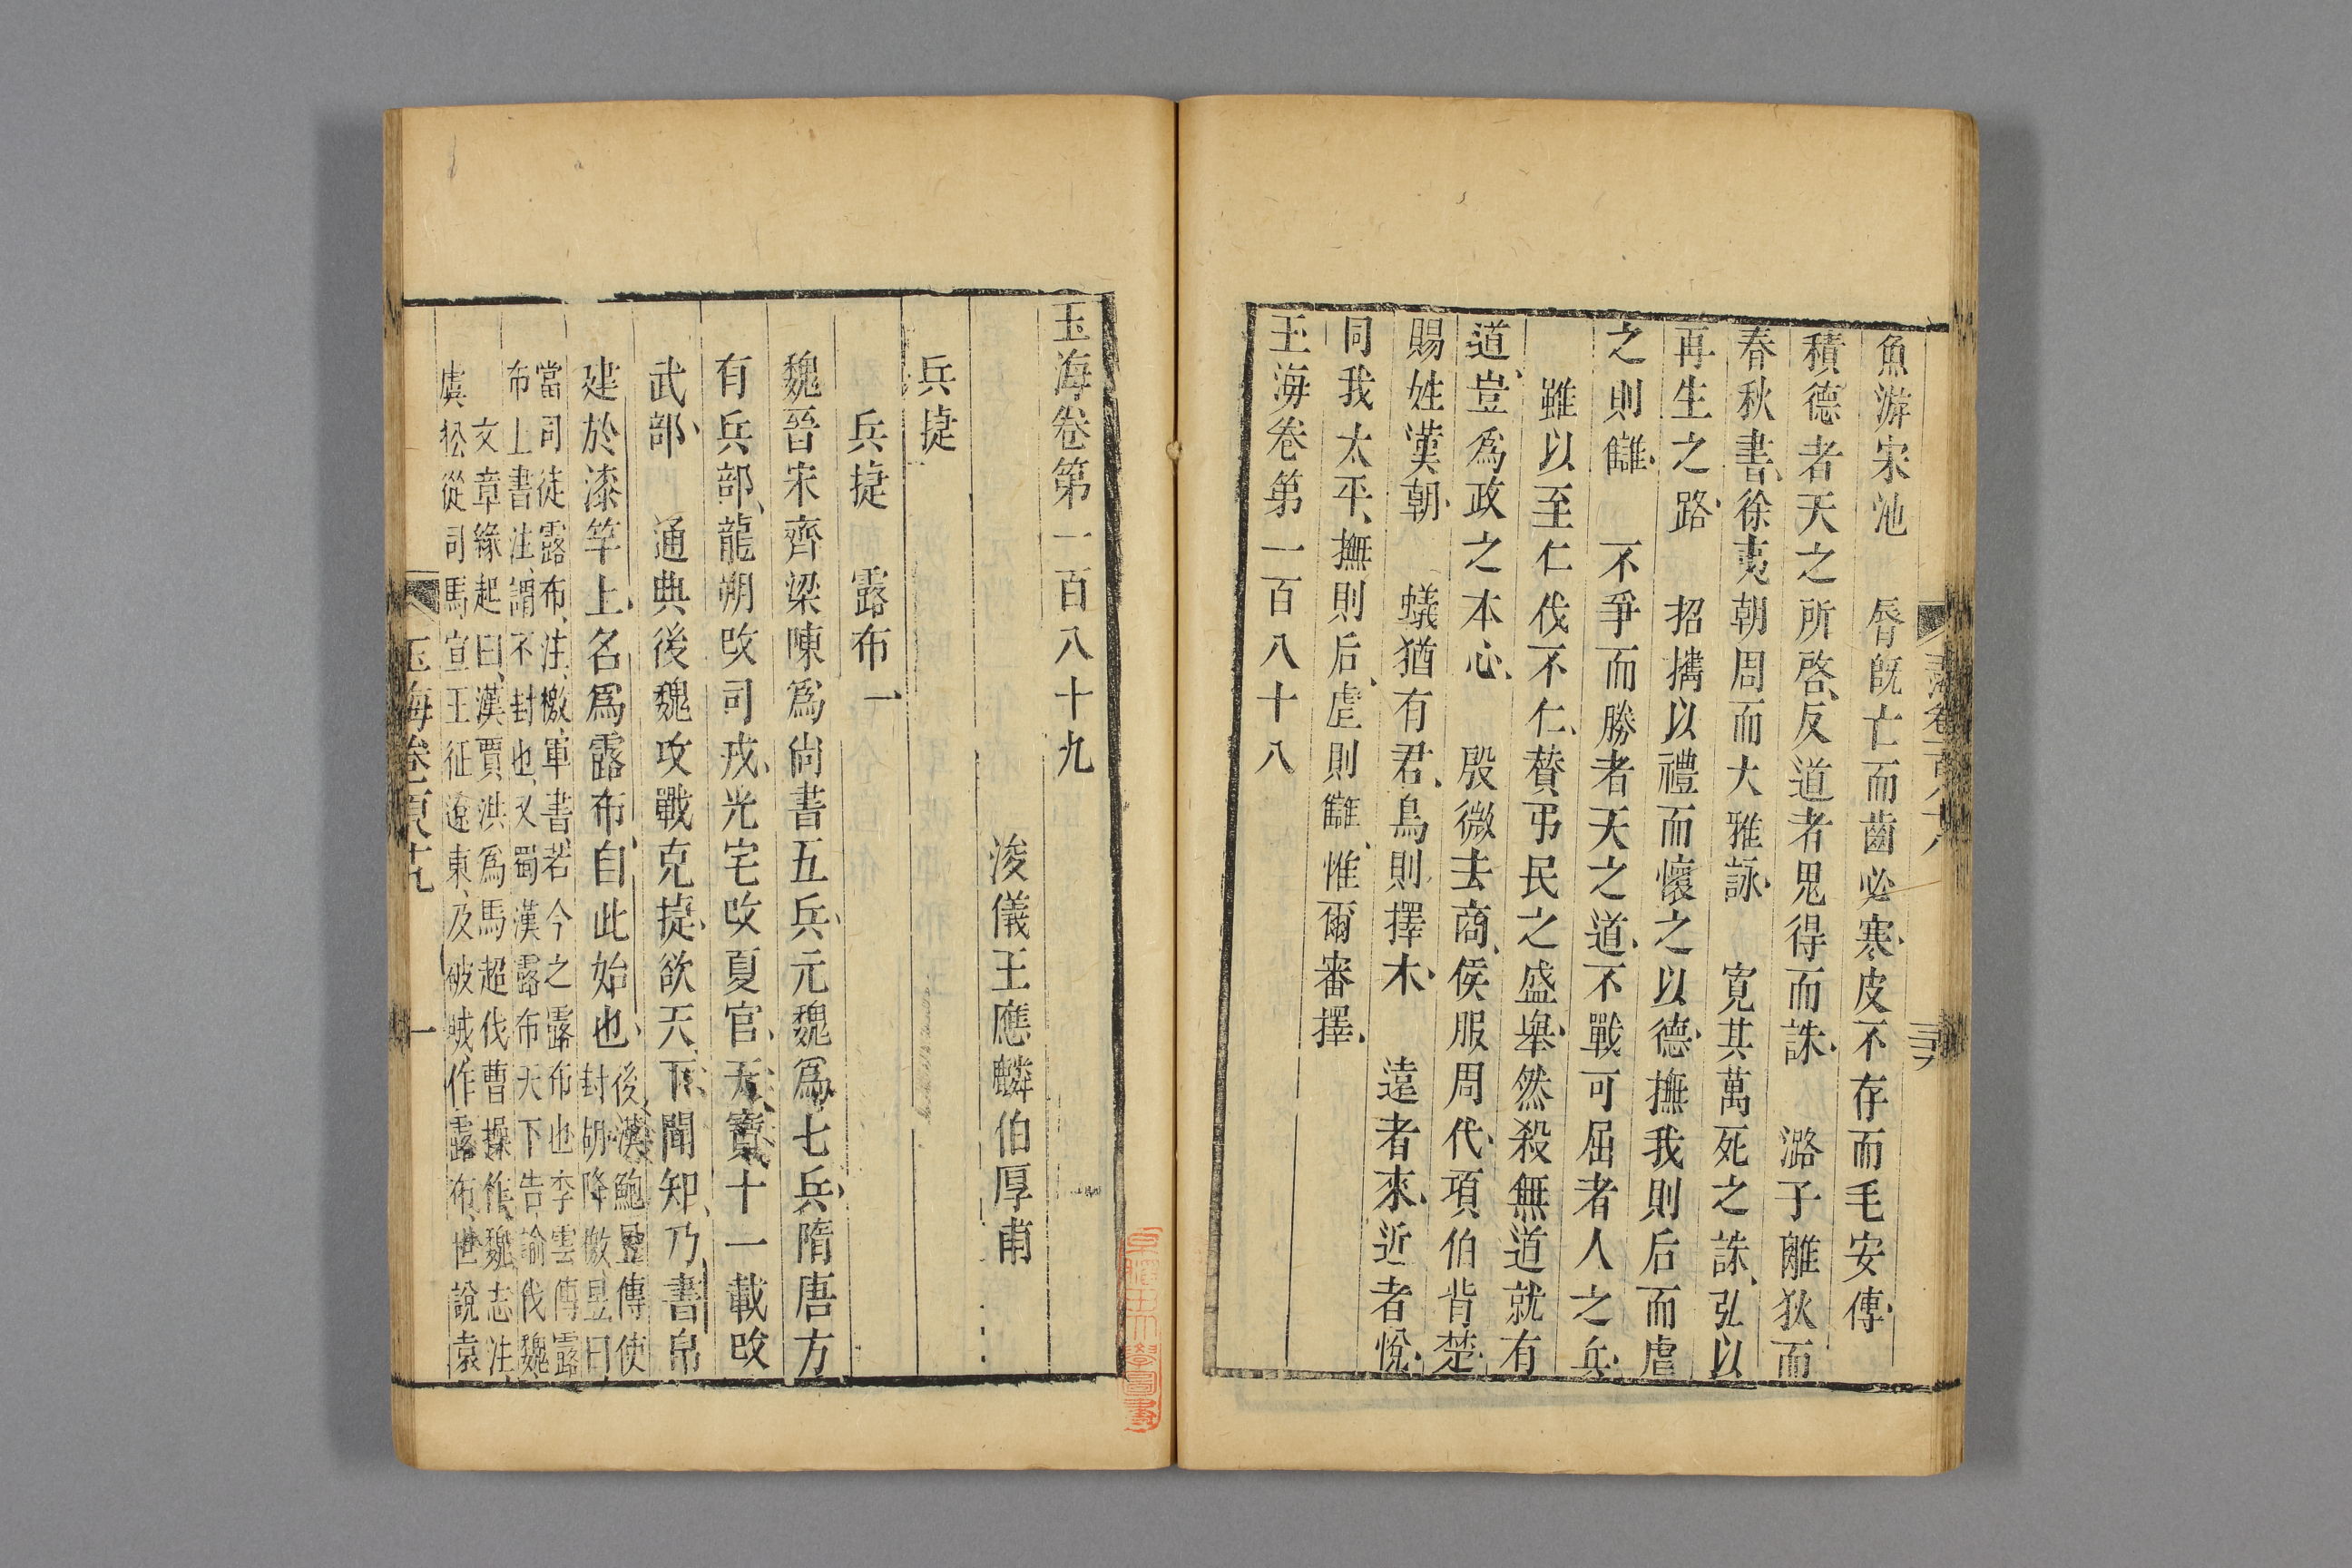 魚游宋池　脣旣亡而齒必寒、皮不存而毛安傳、
積德者天之所啓、反道者鬼得而誅、　潞子離狄而
春秋書、徐夷朝周而大雅詠、　寛其萬死之誅、弘以
再生之路、　招携以禮而懷之以德、撫我則后而虐
之則讎、　不爭而勝者天之道、不戰可屈者人之兵、
雖以至仁伐不仁、賛弔民之盛舉、然殺無道就有
道、豈爲政之本心、　殷微去商、侯服周代、項伯背楚、
賜姓漢朝、　蟻猶有君、鳥則擇木、　遠者來、近者悅、
同我太平、撫則后、虐則讎、惟爾審擇、
玉海卷第一百八十八
玉海卷第一百八十九
浚儀王應麟伯厚甫
兵捷
兵捷　露布一
魏晉宋齊梁陳爲尚書五兵、元魏爲七兵、隋唐方
有兵部、龍朔改司戎、光宅改夏官、天寶十一載改
武部、　通典後魏攻戰克捷、欲天下聞知、乃書帛
建於漆竿上、名爲露布、自此始也、後漢鮑昱傳使
封胡降檄、昱曰
當司徒露布、注、檄、軍書、若今之露布也李雲傳露
布上書注、謂不封也、又蜀漢露布天下告諭伐魏
文章緣起曰、漢賈洪爲馬超伐曹操作、魏志注、
虞松從司馬宣王征遼東、及破賊、作露布、世說袁
玉海卷一百八十九　一